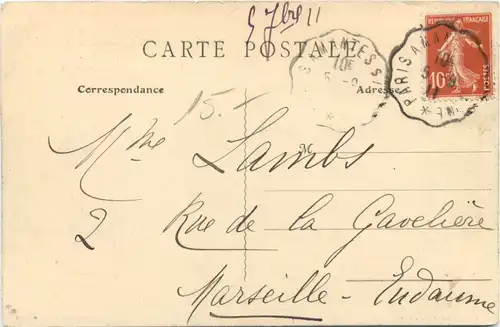 5 7bre 11
CARTE POSTALE
RÉPUBLIQUE FRANÇAISE
10
PARIS A MANTES
10E
5 - 9
11
Correspondance
Adresse
15.-
M
Mme Lambs
2 Rue de la Gavelière
Marseille - Endaume